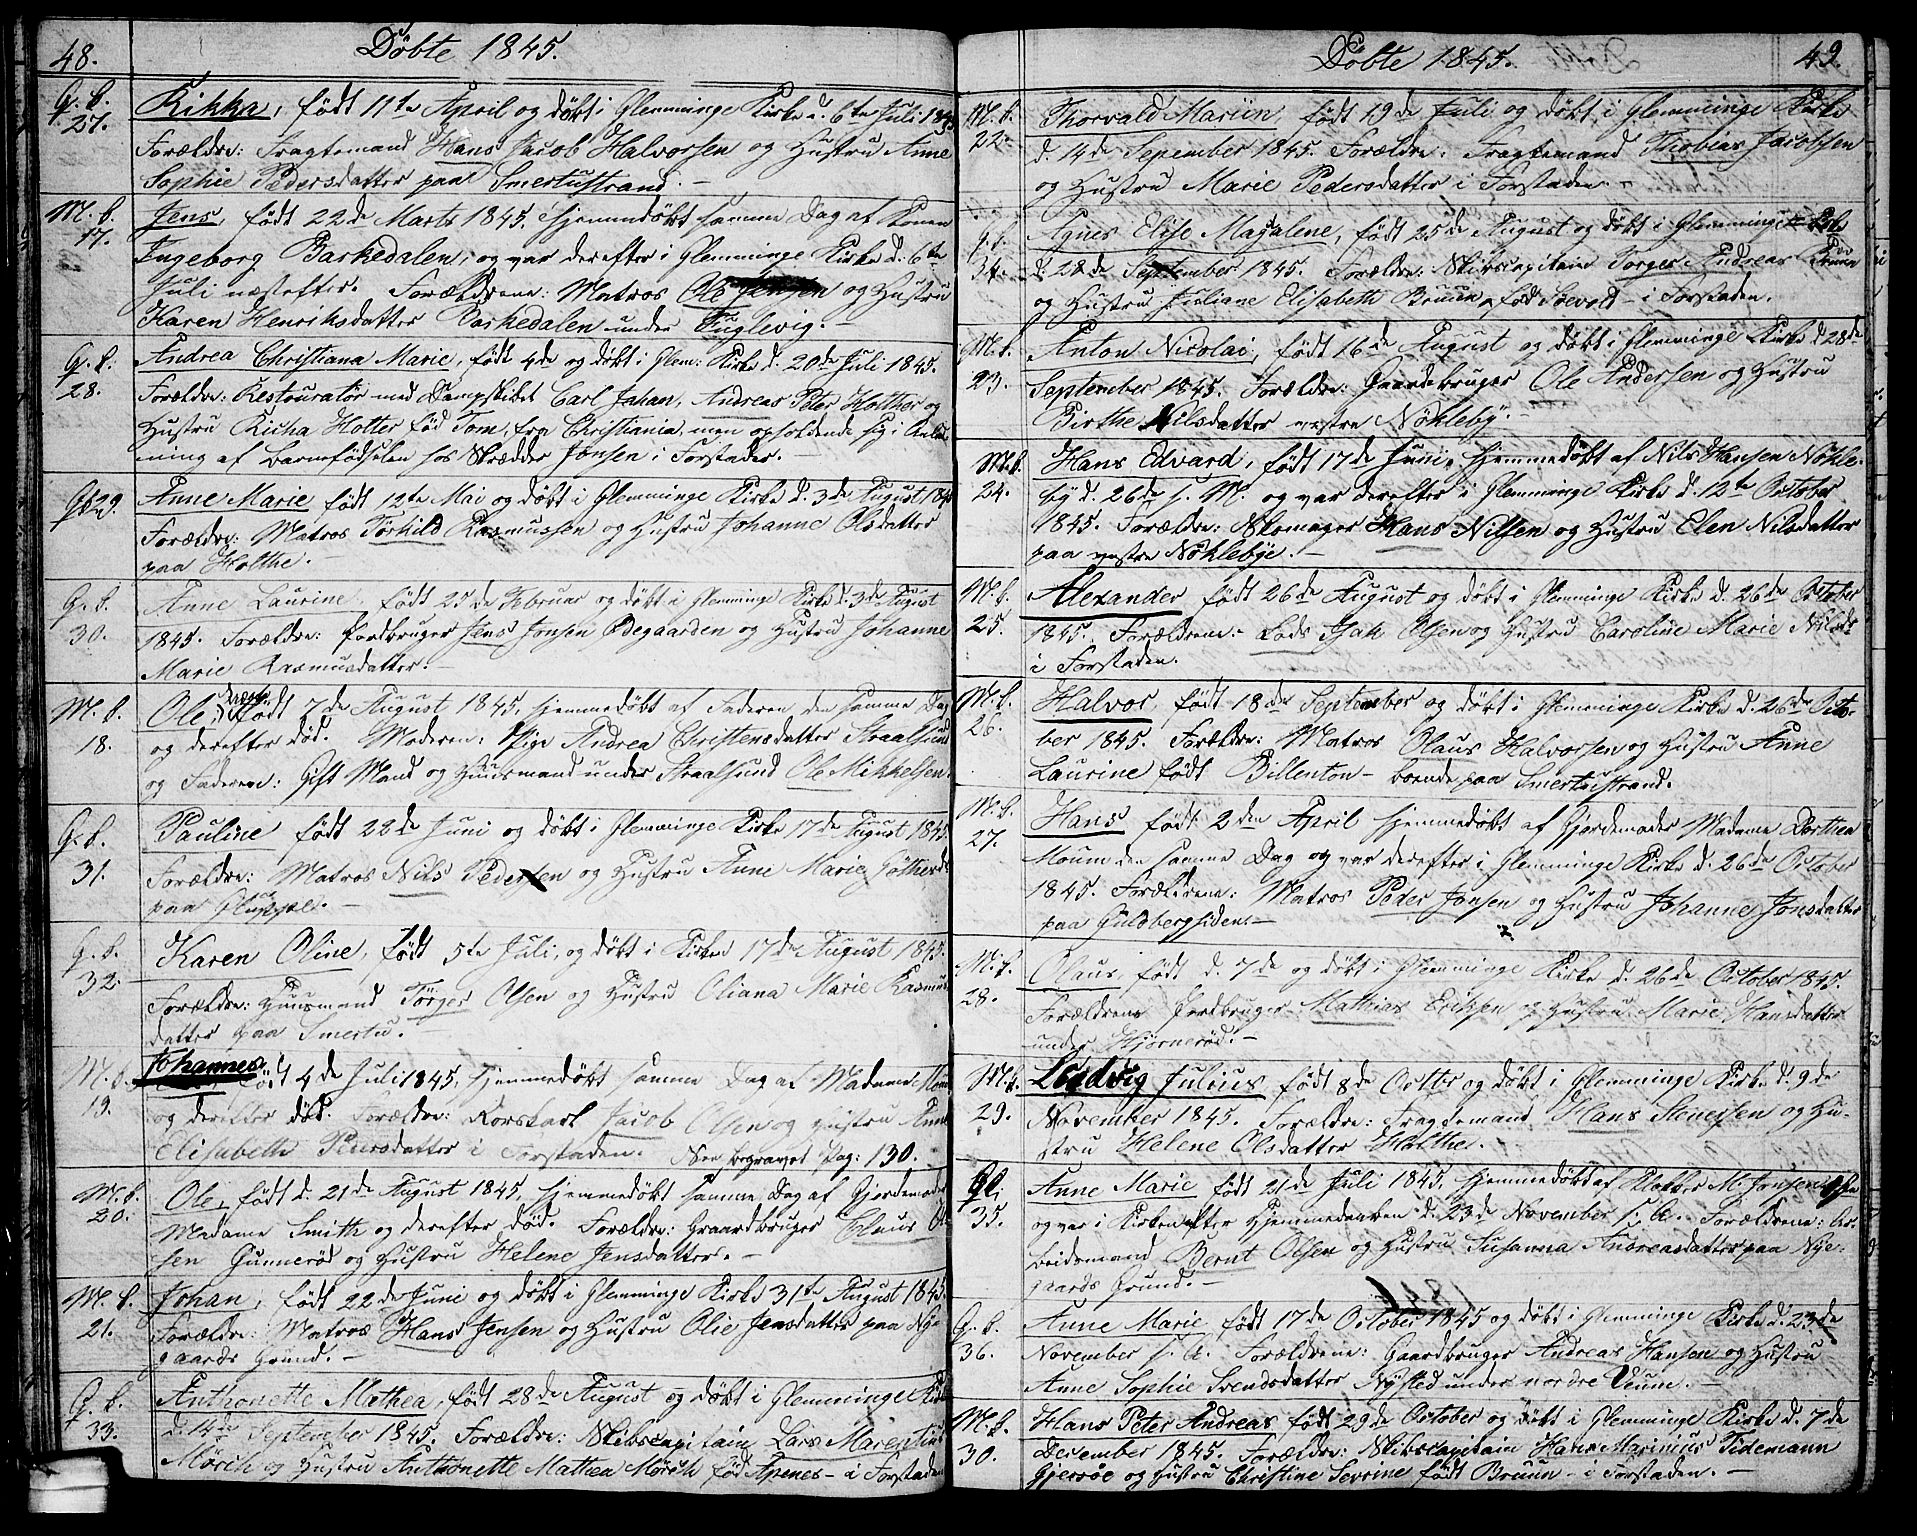 48.
Døbte 1845.
G. b. 27.
Rikka, født 11te April og døbt i Glemminge Kirke d. 6te Juli 1845
Forældre: Fragtemand Hans Jacob Halvorsen og Hustru Anne
Sophie Pedersdatter paa Smertustrand. –
M. b. 17.
Jens, født 22de Marts 1845. Hjemmedøbt samme Dag af Konen
Ingeborg Barkedalen, og var derefter i Glemminge Kirke d. 6te
Juli næstefter. Forældrene: Matros Ole Jensen og Hustru
Karen Henriksdatter Barkedalen under Fuglevig. –
G. b. 28.
Andrea Christiana Marie, født 4de og døbt i Glem: Kirke d. 20de Juli 1845.
Forældre: Restouratør med Dampskibet Carl Johan, Andreas Peter Holther og
Hustru Ricka Holter fød Tom, fra Christiania, men opholdende sig i Anled-
ning af Barnfødselen hos Skrædder Jonsen i Forstaden. –
G. b. 29.
Anne Marie født 12te Mai og døbt i Glemminge Kirke d. 3de August 1845
Forældre: Matros Törkild Rasmussen og Hustru Johanne Olsdatter
paa Holthe. –
G. b. 30.
Anne Laurine, født 25de Februar og døbt i Glemminge Kirke d. 3de August
1845. Forældre: Jordbruger Jens Jonsen Ødegaarden og Hustru Johanne
Marie Rasmusdatter. –
M. b. 18.
Ole, født 7de August 1845, hjemmedøbt af Faderen den samme Dag
og derefter død. Moderen: Pige Andrea Christensdatter Straalsund
og Faderen: Gift Mand og Huusmand under Straalsund Ole Mikkelsen
G. b. 31.
Pauline født 22de Juni og døbt i Glemminge Kirke 17de August 1845.
Forældre: Matros Nils Pedersen og Hustru Anne Marie
paa
G. b. 32.
Karen Oline, født 5te Juli, og døbt i Kirken 17de August 1845.
Forældre: Huusmand Törger Olsen og Hustru Oliana Marie Rasmus
datter paa Smertu.
M. b. 19.
Johannes født 4de Juli 1845, hjemmedøbt samme Dag af Madame
og derefter død. Forældre: Rorskarl Jacob Olsen og Hustru Anne
Elisabeth Pedersdatter i Forstaden. Non begravet Pag: 130.
M. b. 20.
Ole, født d. 21de August 1845, hjemmedøbt samme Dag af Gjordemoder
Madame Smith og derefter død. Forældre: Gaardbruger Claus Ol
sen Gunnerød og Hustru Helene Jensdatter. –
M. b. 21.
Johan, født 22de Juni og døbt i Glemminge Kirke 31te August 1845
Forældre: Matros Hans Jensen og Hustru Olie Jensdatter paa Nye
gaards Grund. –
G. b. 33.
Anthonette Mathea, født 28de August og døbt i Glemminge Kirke
d. 14de September 1845. Forældre: Skibscapitain Lars Marentius
Mörch og Hustru Anthonette Mathea Mörch fød Apenes – i Forstaden
Døbte 1845.
49.
M. b. 22.
Thorvald Mariin, født 19de Juli og døbt i Glemminge Kirke
d. 14de September 1845. Forældre: Fragtemand Thobias Jacobsen
og Hustru Marie Pedersdatter i Forstaden. –
G. b. 34.
Agnes Elise Magalene, født 25de August og døbt i Glemminge Kirke
d. 28de September 1845. Forældre: Skibscapitain Torger Andreas Bruun
og Hustru Juliane Elisabeth Bruun, fød Soevold – i Forstaden.
M. b. 23.
Anton Nicolai, født 16de August og døbt i Glemminge Kirke d 28de
September 1845. Forældre: Gaardebruger Ole Andersen og Hustru
Birthe Nilsdatter vestre Nøkleby. –
M. b. 24.
Hans Edvard, født 17de Juni, hjemmedøbt af Nils Hansen Nøkle-
by d. 26de s. M. og var derefter i Glemminge Kirke d. 12te October
1845. Forældre: Skomager Hans Nilsen og Hustru Elen Nilsdatter
paa vestre Nøklebye. –
M. b. 25.
Alexander født 26de August og døbt i Glemminge Kirke d. 26de October
1845. Forældrene: – Lods Isak Olsen og Hustru Caroline Marie Nilsd:
i Forstaden.
M. b. 26.
Halvor, født 18de September og døbt i Glemminge Kirke d. 26de Octo-
ber 1845. Forældre: Matros Olaus Halvorsen og Hustru Anne
Laurine født Billenton – boende paa Smertustrand.
M. b. 27.
Hans født 2den April hjemmedøbt af Gjordemoder Madame Dorthea
Moum den samme Dag og var derefter i Glemminge Kirke d. 26de October
1845. Forældrene: Matros Peder Jonsen og Hustru Johanne Jonsdatter
paa Guldbergsiden. –
M. b. 28.
Olaus, født d. 7de og døbt i Glemminge Kirke d. 26de October 1845.
Forældrene Jordbruger Mathias Eriksen og Hustru Marie Hansdatter
under Hjørnerød. –
M. b. 29.
Ludvig Julius født 8de Octbr og døbt i Glemminge Kirke d. 9de
November 1845. Forældre: Fragtemand Hans Steuersen og Hu-
stru Helene Olsdatter Holthe. –
G. b. 35.
Anne Marie født 21de Juli 1845, hjemmedøbt af Klokker M. Jonsen
og var i Kirken efter Hjemmedaaben d. 23de November s. A. Forældrene: Ar-
beidsmand Bernt Olsen og Hustru Susanna Andreasdatter paa Nye-
gaards Grund. –
G. b. 36.
Anne Marie født 17de October 1845 og døbt i Glemminge Kirke d. 23de
November s. A. Forældrene: Gaardbruger Andreas Hansen og Hustru
Anne Sophie Svendsdatter Nysted under nordre Veum. –
M. b. 30.
Hans Peter Andreas født 29de October og døbt i Glemminge Kirke d. 7de
December 1845. Forældre: Skibscapitain Hans Marinius Tidemann
Gjersøe og Hustru Christine Sevrine født Bruun – i Forstaden. –